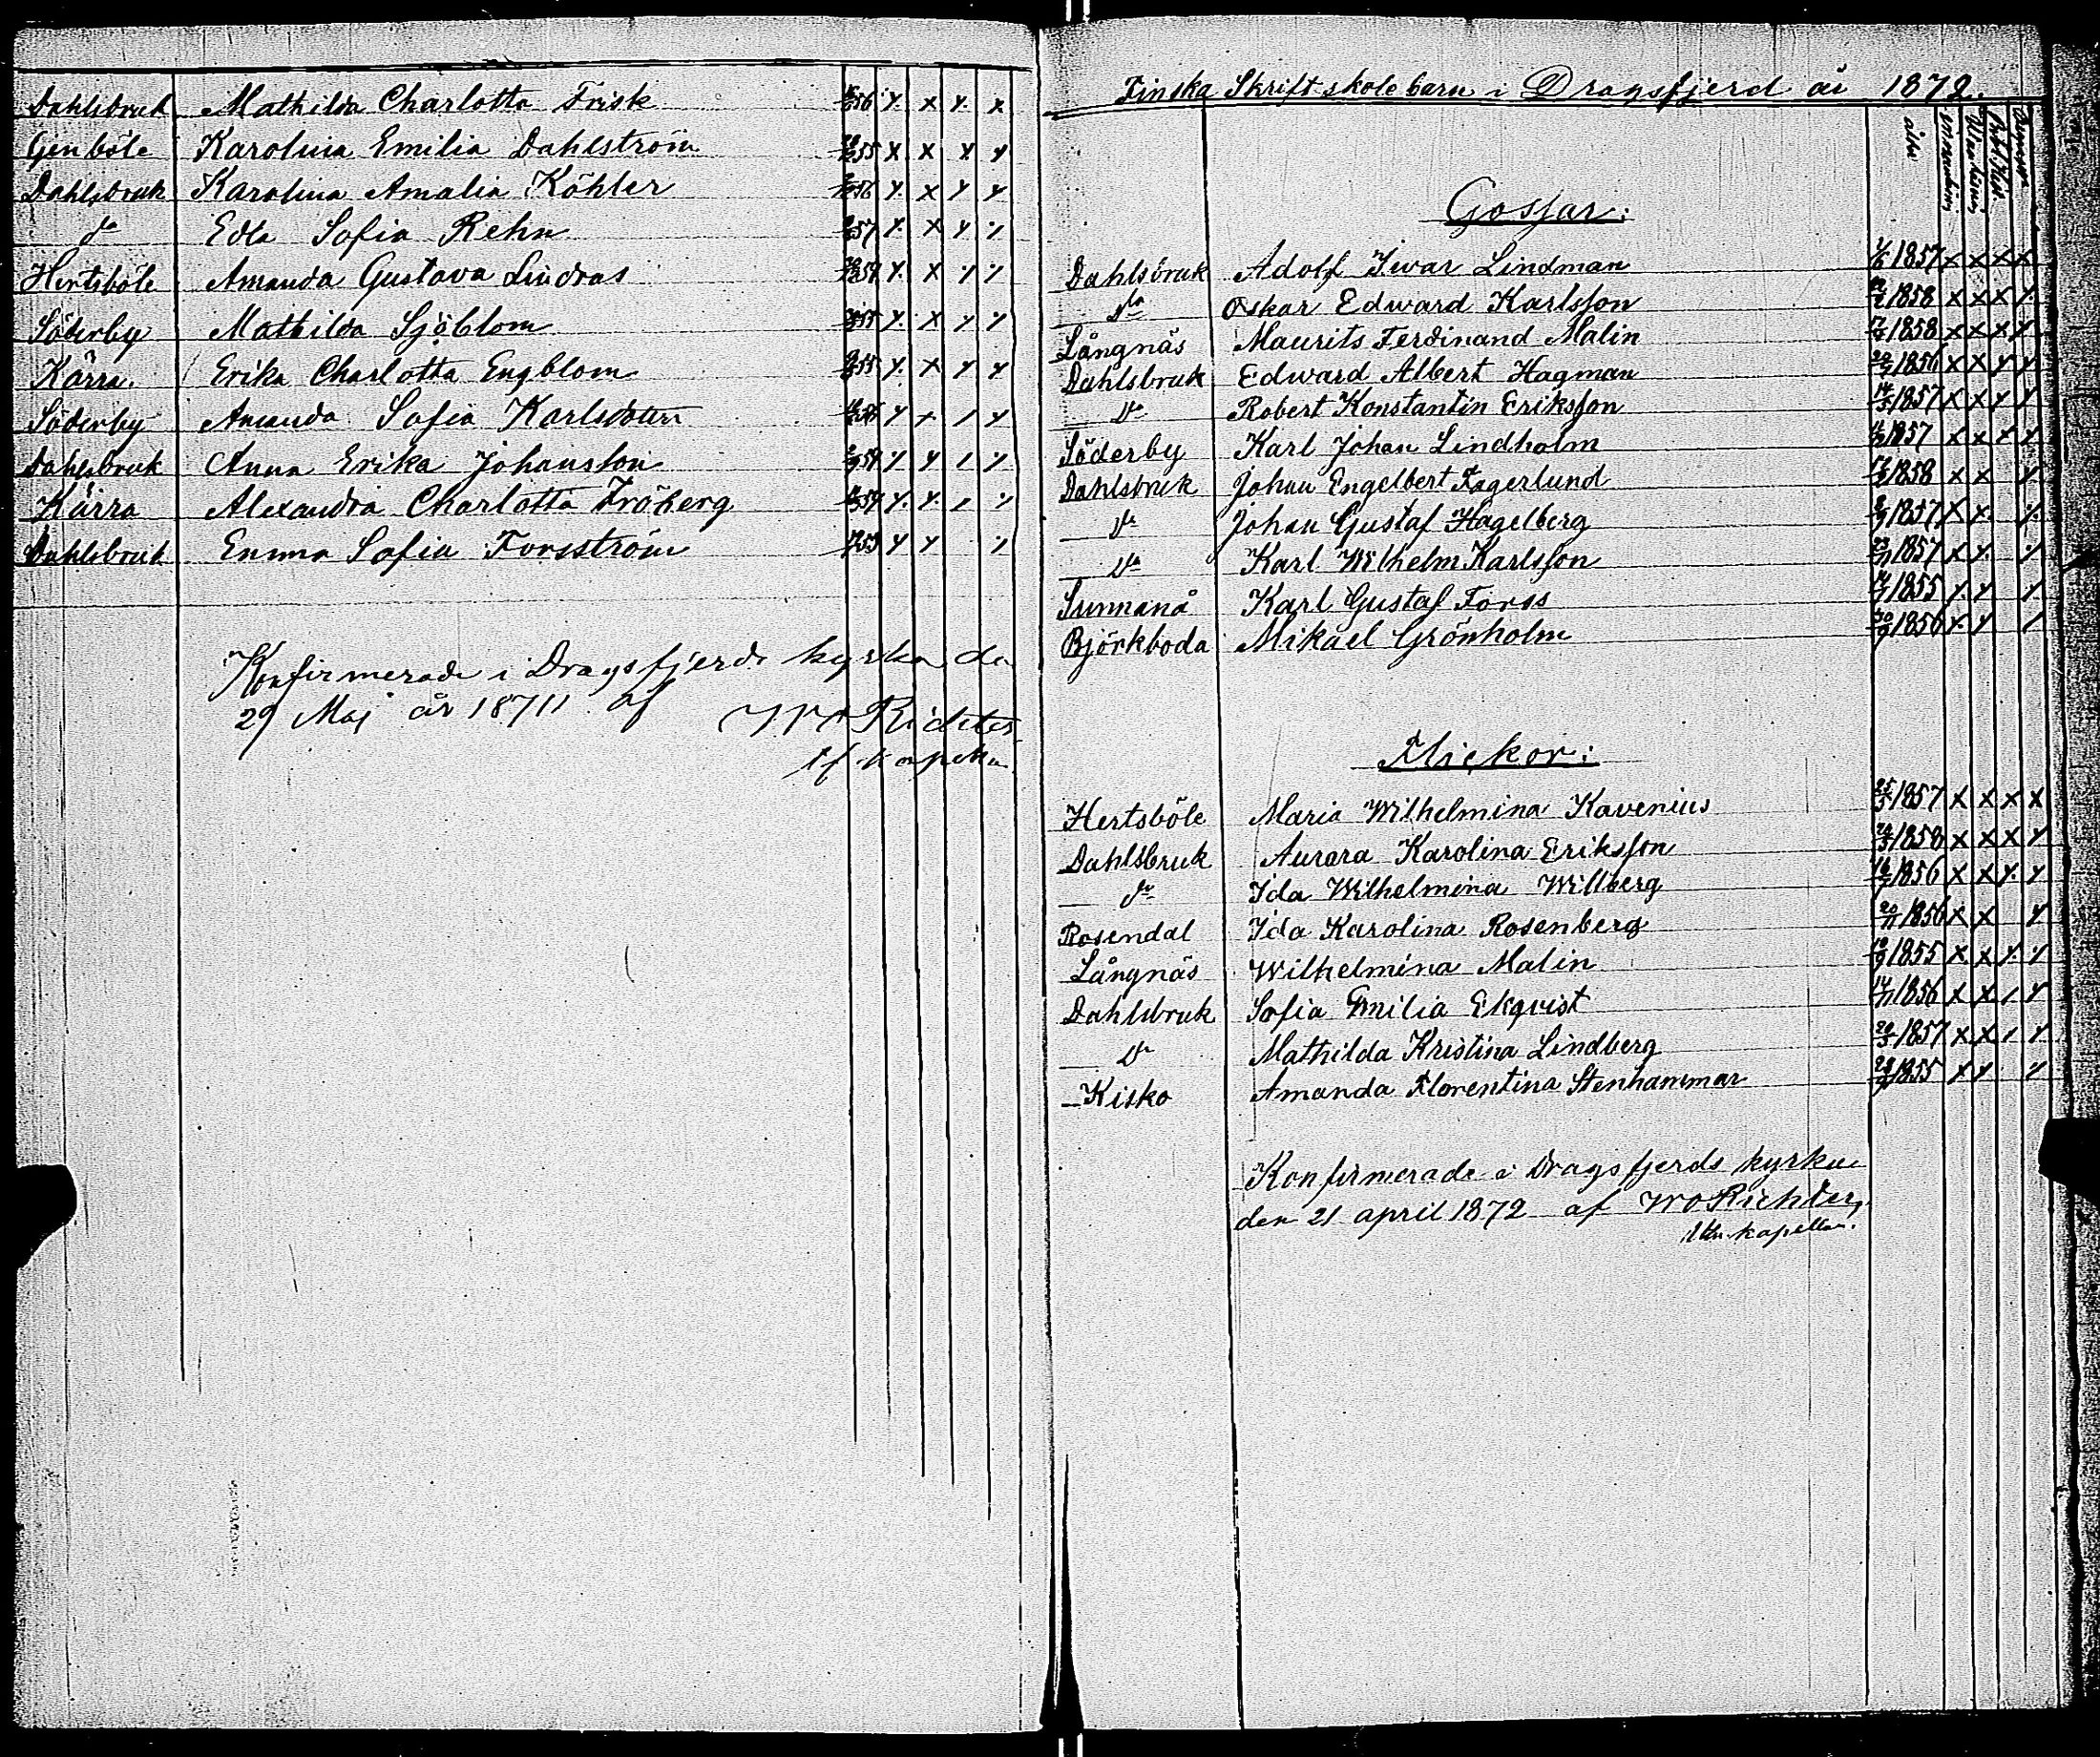 Dahlsbruk Mathilda Charlotta Frisk 56 x x x x
Genböle Karolina Emilia Dahlström 55 x x x x
Dahlsbruk Karolina Amalia Köhler 56 x x x x
do Edla Sofia Rehn 57 x x x x
Hertsböle Amanda Gustava Lindros x x x x
Söderby Mathilda Sjöblom 55 x x x x
Kärra Erika Charlotta Engblom 55 x x x x
Söderby Amanda Sofia Karlsdotter x x / x
Dahlsbruk Anna Erika Johansson x x / x
Kärra Alexandra Charlotta Fröberg x x / x
Dahlsbruk Emma Sofia Forsström 53 x x x
Konfirmerade i Dragsfjerds kyrka de
29 Maj år 1871 af W O Richter
tf kapellan
Finska Skriftskolebarn i Dragsfjerd år 1872.
Gossar:
Dahlsbruk Adolf Iwar Lindman 1857 x x x x
do Oskar Edward Karlsson 1858 x x x x
Långnäs Maurits Ferdinand Malin 1858 x x x x
Dahlsbruk Edward Albert Hagman 1856 x x x x
do Robert Konstantin Eriksson 14/3 1857 x x x x
Söderby Karl Johan Lindholm 1857 x x x x
Dahlsbruk Johan Engelbert Fagerlund 1858 x x x
do Johan Gustaf Hagelberg 1857 x x x
do Karl Wilhelm Karlsson 23/11 1857 x x x
Sunnanå Karl Gustaf Forss 1855 x x x
Björkboda Mikael Grönholm 30/9 1856 x x /
Flickor:
Hertsböle Maria Wilhelmina Kavenius 25/5 1857 x x x x
Dahlsbruk Aurora Karolina Eriksson 1858 x x x x
do Ida Wilhelmina Willberg 1856 x x x x
Rosendal Ida Karolina Rosenberg 20/11 1856 x x x
Långnäs Wilhelmina Malin 1855 x x x x
Dahlsbruk Sofia Emilia Ekqvist 14/11 1856 x x / x
do Mathilda Kristina Lindberg 1857 x x / x
Kisko Amanda Florentina Stenhammar 1855 x x x
Konfirmerade i Dragsfjerds kyrka
den 21 april 1872 af W O Richter,
kapellan.